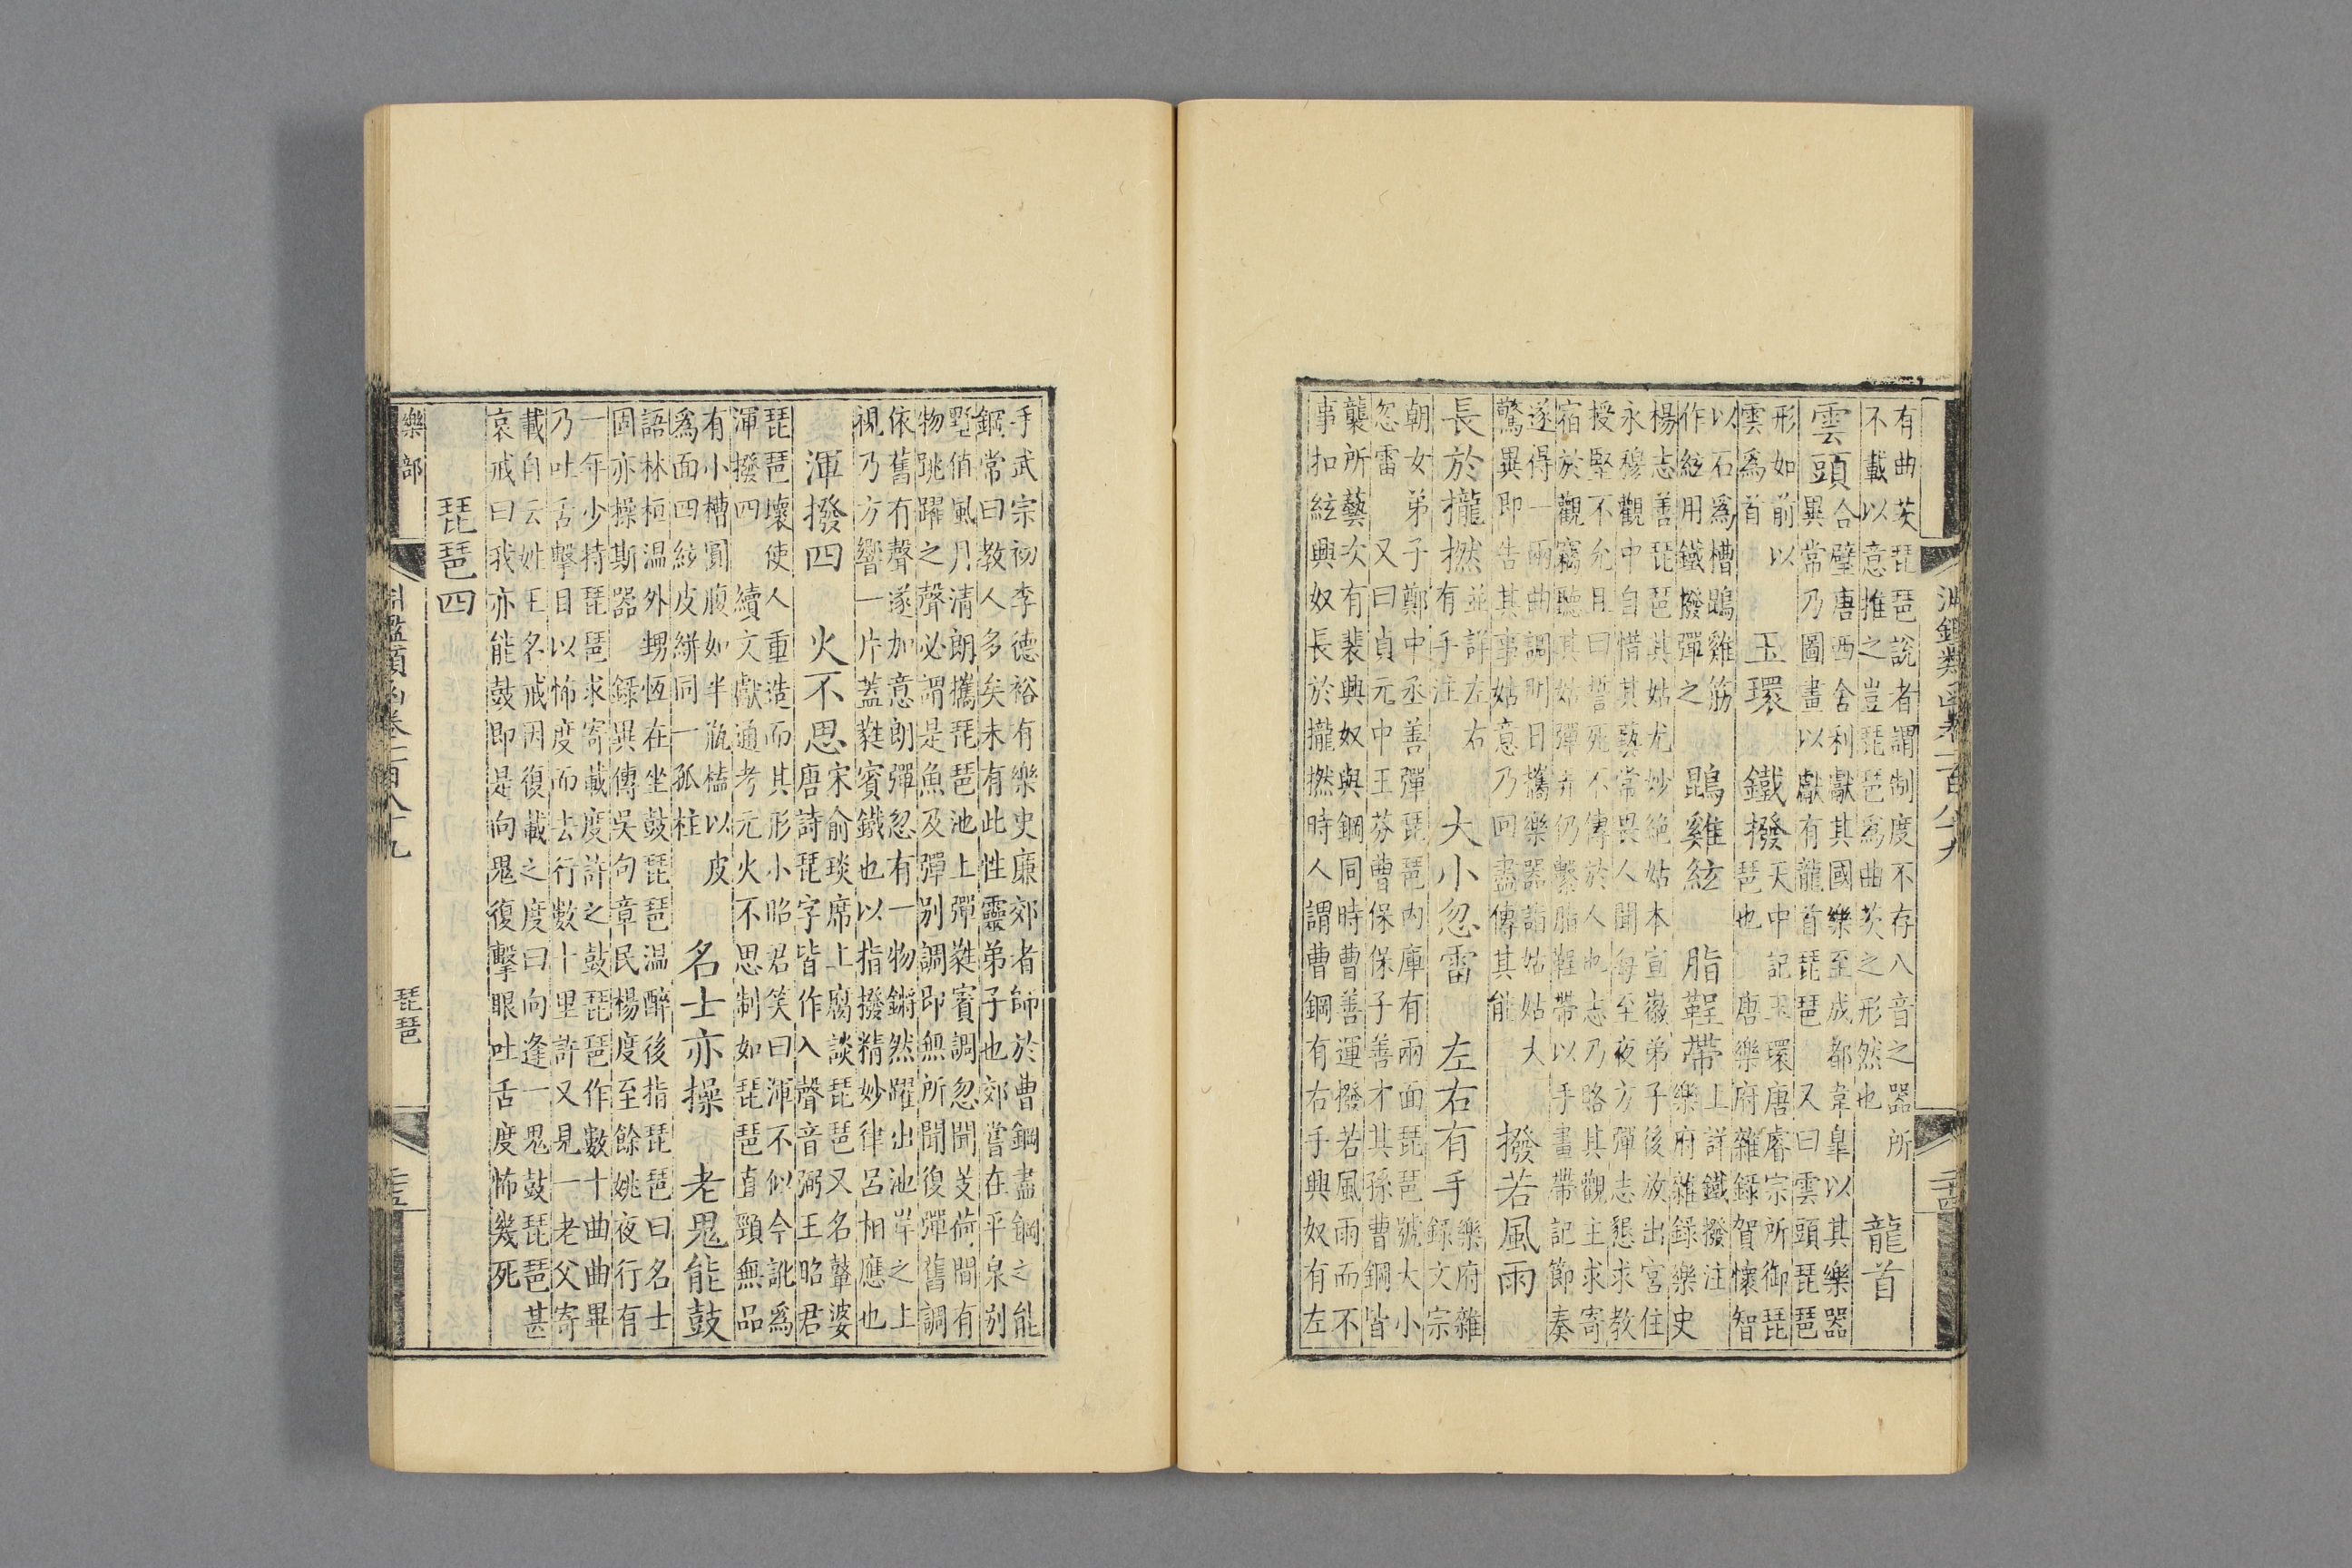 淵鑑類函卷一百八十九
有曲茨琵琶說者謂制度不存八音之器所
不載以意推之豈琵琶爲曲茨之形然也
龍首
雲頭
合璧唐西舍利獻其國樂至成都韋皐以其樂器
異常乃圖畫以獻有龍首琵琶又曰雲頭琵琶
形如前以
雲爲首
玉環 鐵撥
天中記玉環唐睿宗所御琵
琶也 唐樂府雜録賀懷智
以石爲槽鵾雞筋
作絃用鐵撥彈之
鵾雞絃 脂鞓帶
上詳鐵撥注
樂府雜録樂史
楊志善琵琶其姑尤妙絶姑本宣徽弟子後放出宮住
永穆觀中自惜其藝常畏人聞每至夜方彈志懇求教
授堅不允且曰誓死不傳於人也志乃賂其觀主求寄
宿於觀竊聽其姑彈弄仍繫脂鞓帶以手畫帶記節奏
遂得一兩曲調明日攜樂器詣姑姑大
驚異即告其事姑意乃回盡傳其能
撥若風雨
長於攏撚
並詳左右
有手注
大小忽雷 左右有手
樂府雜
録文宗
朝女弟子鄭中丞善彈琵琶內庫有兩面琵琶號大小
忽雷 又曰貞元中王芬曹保保子善才其孫曹鋼皆
襲所藝次有裴興奴與鋼同時曹善運撥若風雨而不
事扣絃興奴長於攏撚時人謂曹鋼有右手興奴有左
手武宗初李德裕有樂史廉郊者師於曹鋼盡鋼之能
鋼常曰教人多矣未有此性靈弟子也郊嘗在平泉別
墅値風月清朗攜琵琶池上彈蕤賓調忽聞芰荷間有
物跳躍之聲必謂是魚及彈別調即無所聞復彈舊調
依舊有聲遂加意朗彈忽有一物鏘然躍出池岸之上
視乃方響一片蓋蕤賓鐵也以指撥精妙律呂相應也
渾撥四 火不思
宋俞琰席上腐談琵琶又名鼙婆
唐詩琵字皆作入聲音弼王昭君
琵琶壞使人重造而其形小昭君笑曰渾不似今訛爲
渾撥四 續文獻通考元火不思制如琵琶直頸無品
有小槽圓腹如半瓶榼以皮
爲面四絃皮絣同一孤柱
名士亦操 老鬼能鼓
語林桓温外甥恆在坐鼓琵琶温醉後指琵琶曰名士
固亦操斯器 録異傳吳句章民楊度至餘姚夜行有
一年少持琵琶求寄載度許之鼓琵琶作數十曲曲畢
乃吐舌擊目以怖度而去行數十里許又見一老父寄
載自云姓王名戒因復載之度曰向逢一鬼鼓琵琶甚
哀戒曰我亦能鼓即是向鬼復擊眼吐舌度怖幾死
琵琶四
樂部 淵鑑類函卷一百八十九 琵琶